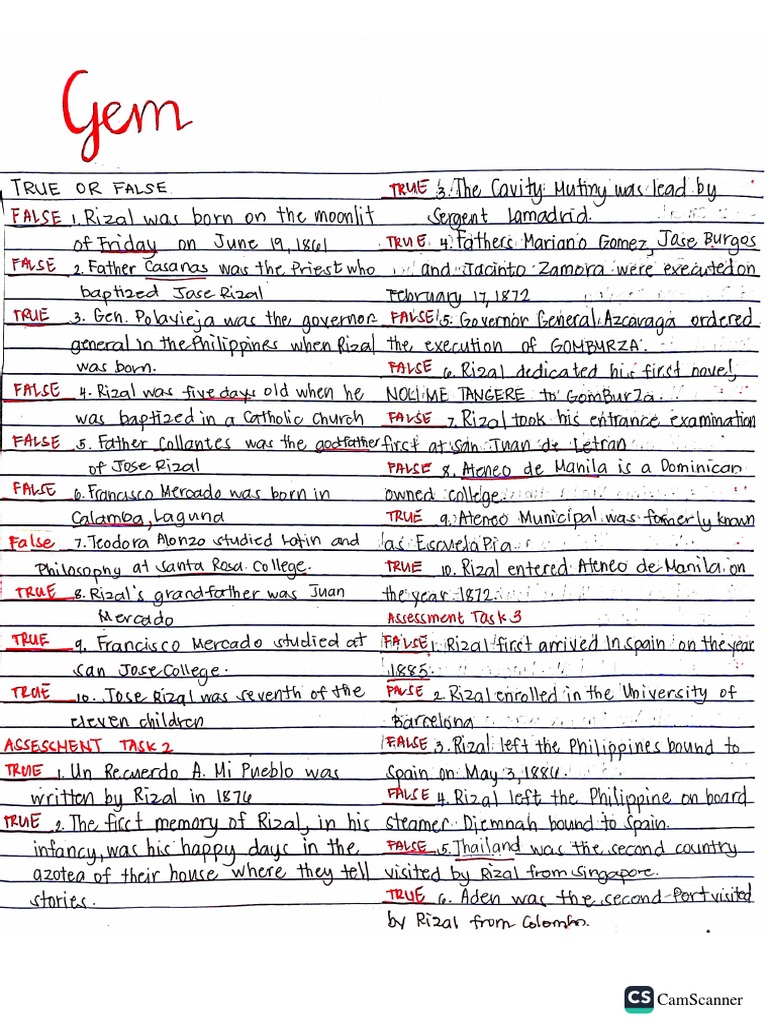 Gem
TRUE OR FALSE
FALSE 1. Rizal was born on the moonlit
of Friday on June 19, 1861
FALSE 2. Father Casanas was the Priest who
baptized Jose Rizal
TRUE 3. Gen. Polavieja was the governor
general in the Philippines when Rizal
was born.
FALSE 4. Rizal was five days old when he
was baptized in a Catholic Church
FALSE 5. Father Collantes was the godfather
of Jose Rizal
FALSE 6. Francisco Mercado was born in
Calamba, Laguna
False 7. Teodora Alonzo studied Latin and
Philosophy at Santa Rosa College.
TRUE 8. Rizal's grandfather was Juan
Mercado
TRUE 9. Francisco Mercado studied at
San Jose College.
TRUE 10. Jose Rizal was seventh of the
eleven children
ASSESSMENT TASK 2
TRUE 1. Un Recuerdo A. Mi Pueblo was
written by Rizal in 1876
TRUE 2. The first memory of Rizal, in his
infancy, was his happy days in the
azotea of their house where they tell
stories.
TRUE 3. The Cavity Mutiny was lead by
Sergent Lamadrid.
TRUE 4. Fathers Mariano Gomez, Jose Burgos
and Jacinto Zamora were executed on
February 17, 1872
FALSE 5. Governor General Azcavaga ordered
the execution of GOMBURZA.
FALSE 6. Rizal dedicated his first novel
NOLI ME TANGERE to GomBurZa.
FALSE 7. Rizal took his entrance examination
first at San Juan de Letran
FALSE 8. Ateneo de Manila is a Dominican
owned college.
TRUE 9. Ateneo Municipal was formerly known
as Escuela Pia.
TRUE 10. Rizal entered Ateneo de Manila on
the year 1872.
Assessment Task 3
FALSE 1. Rizal first arrived In Spain on the year
1885.
FALSE 2. Rizal enrolled in the University of
Barcelona
FALSE 3. Rizal left the Philippines bound to
Spain on May 3, 1884.
FALSE 4. Rizal left the Philippine on board
steamer Djemnah bound to Spain.
FALSE 5. Thailand was the second country
visited by Rizal from Singapore.
TRUE 6. Aden was the second Port visited
by Rizal from Colombo.
CS CamScanner